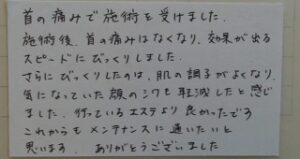 首の痛みで施術を受けました。
施術後、首の痛みはなくなり、効果が出る
スピードにびっくりしました。
さらにびっくりしたのは、肌の調子がよくなり、
気になっていた顔のシワも軽減したと感じ
ました。行っているエステより良かったです
これからもメンテナンスに通いたいと
思います。ありがとうございました